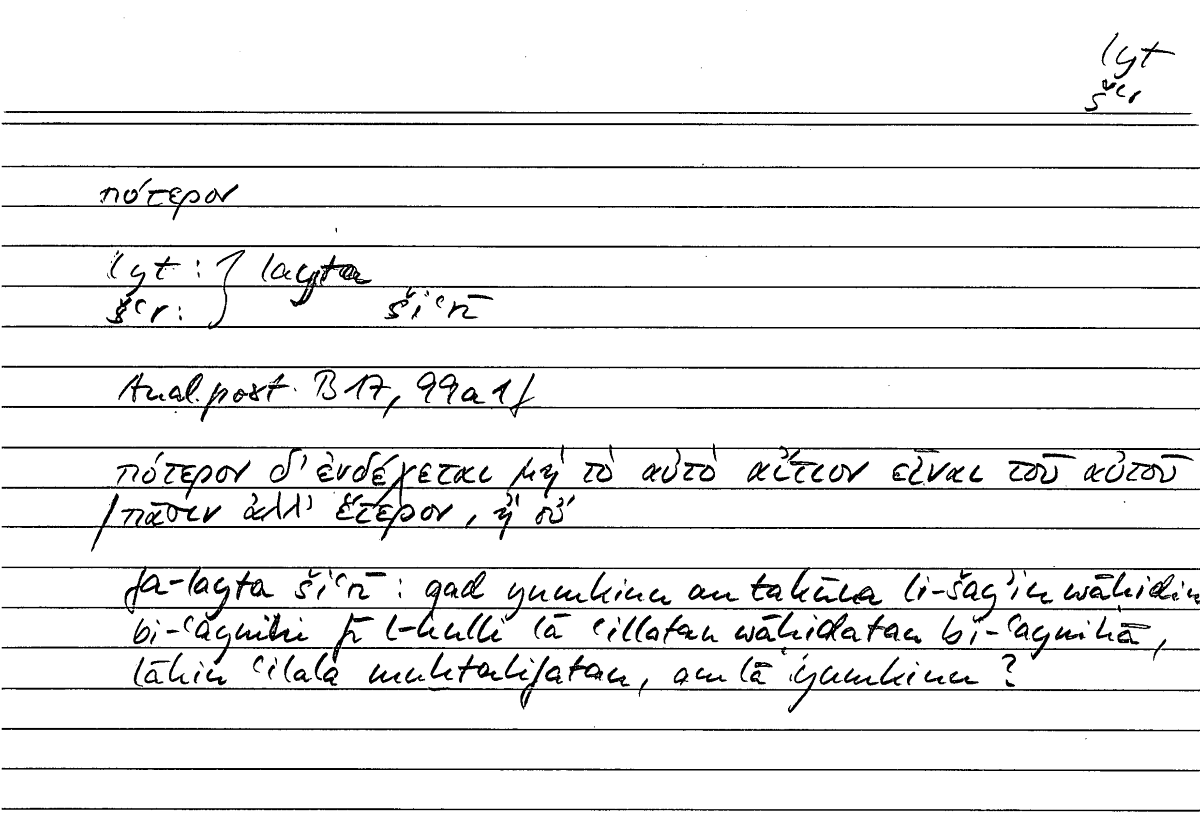 lyt
šʿr
πότερον
lyt : } layta
šʿr : šiʿrī
Anal. post. B 17, 99a 1f
πότερον δ' ἐνδέχεται μὴ τὸ αὐτὸ αἴτιον εἶναι τοῦ αὐτοῦ
/πᾶσιν ἀλλ' ἕτερον, ἢ οὔ
fa-layta šiʿrī : qad yumkinu an takūna li-šayʾin wāḥidin
bi-ʿaynihi fī l-kulli lā ʿillatan wāḥidatan bi-ʿaynihā,
lākin ʿilala muḫtalifatan, am lā yumkinu ?